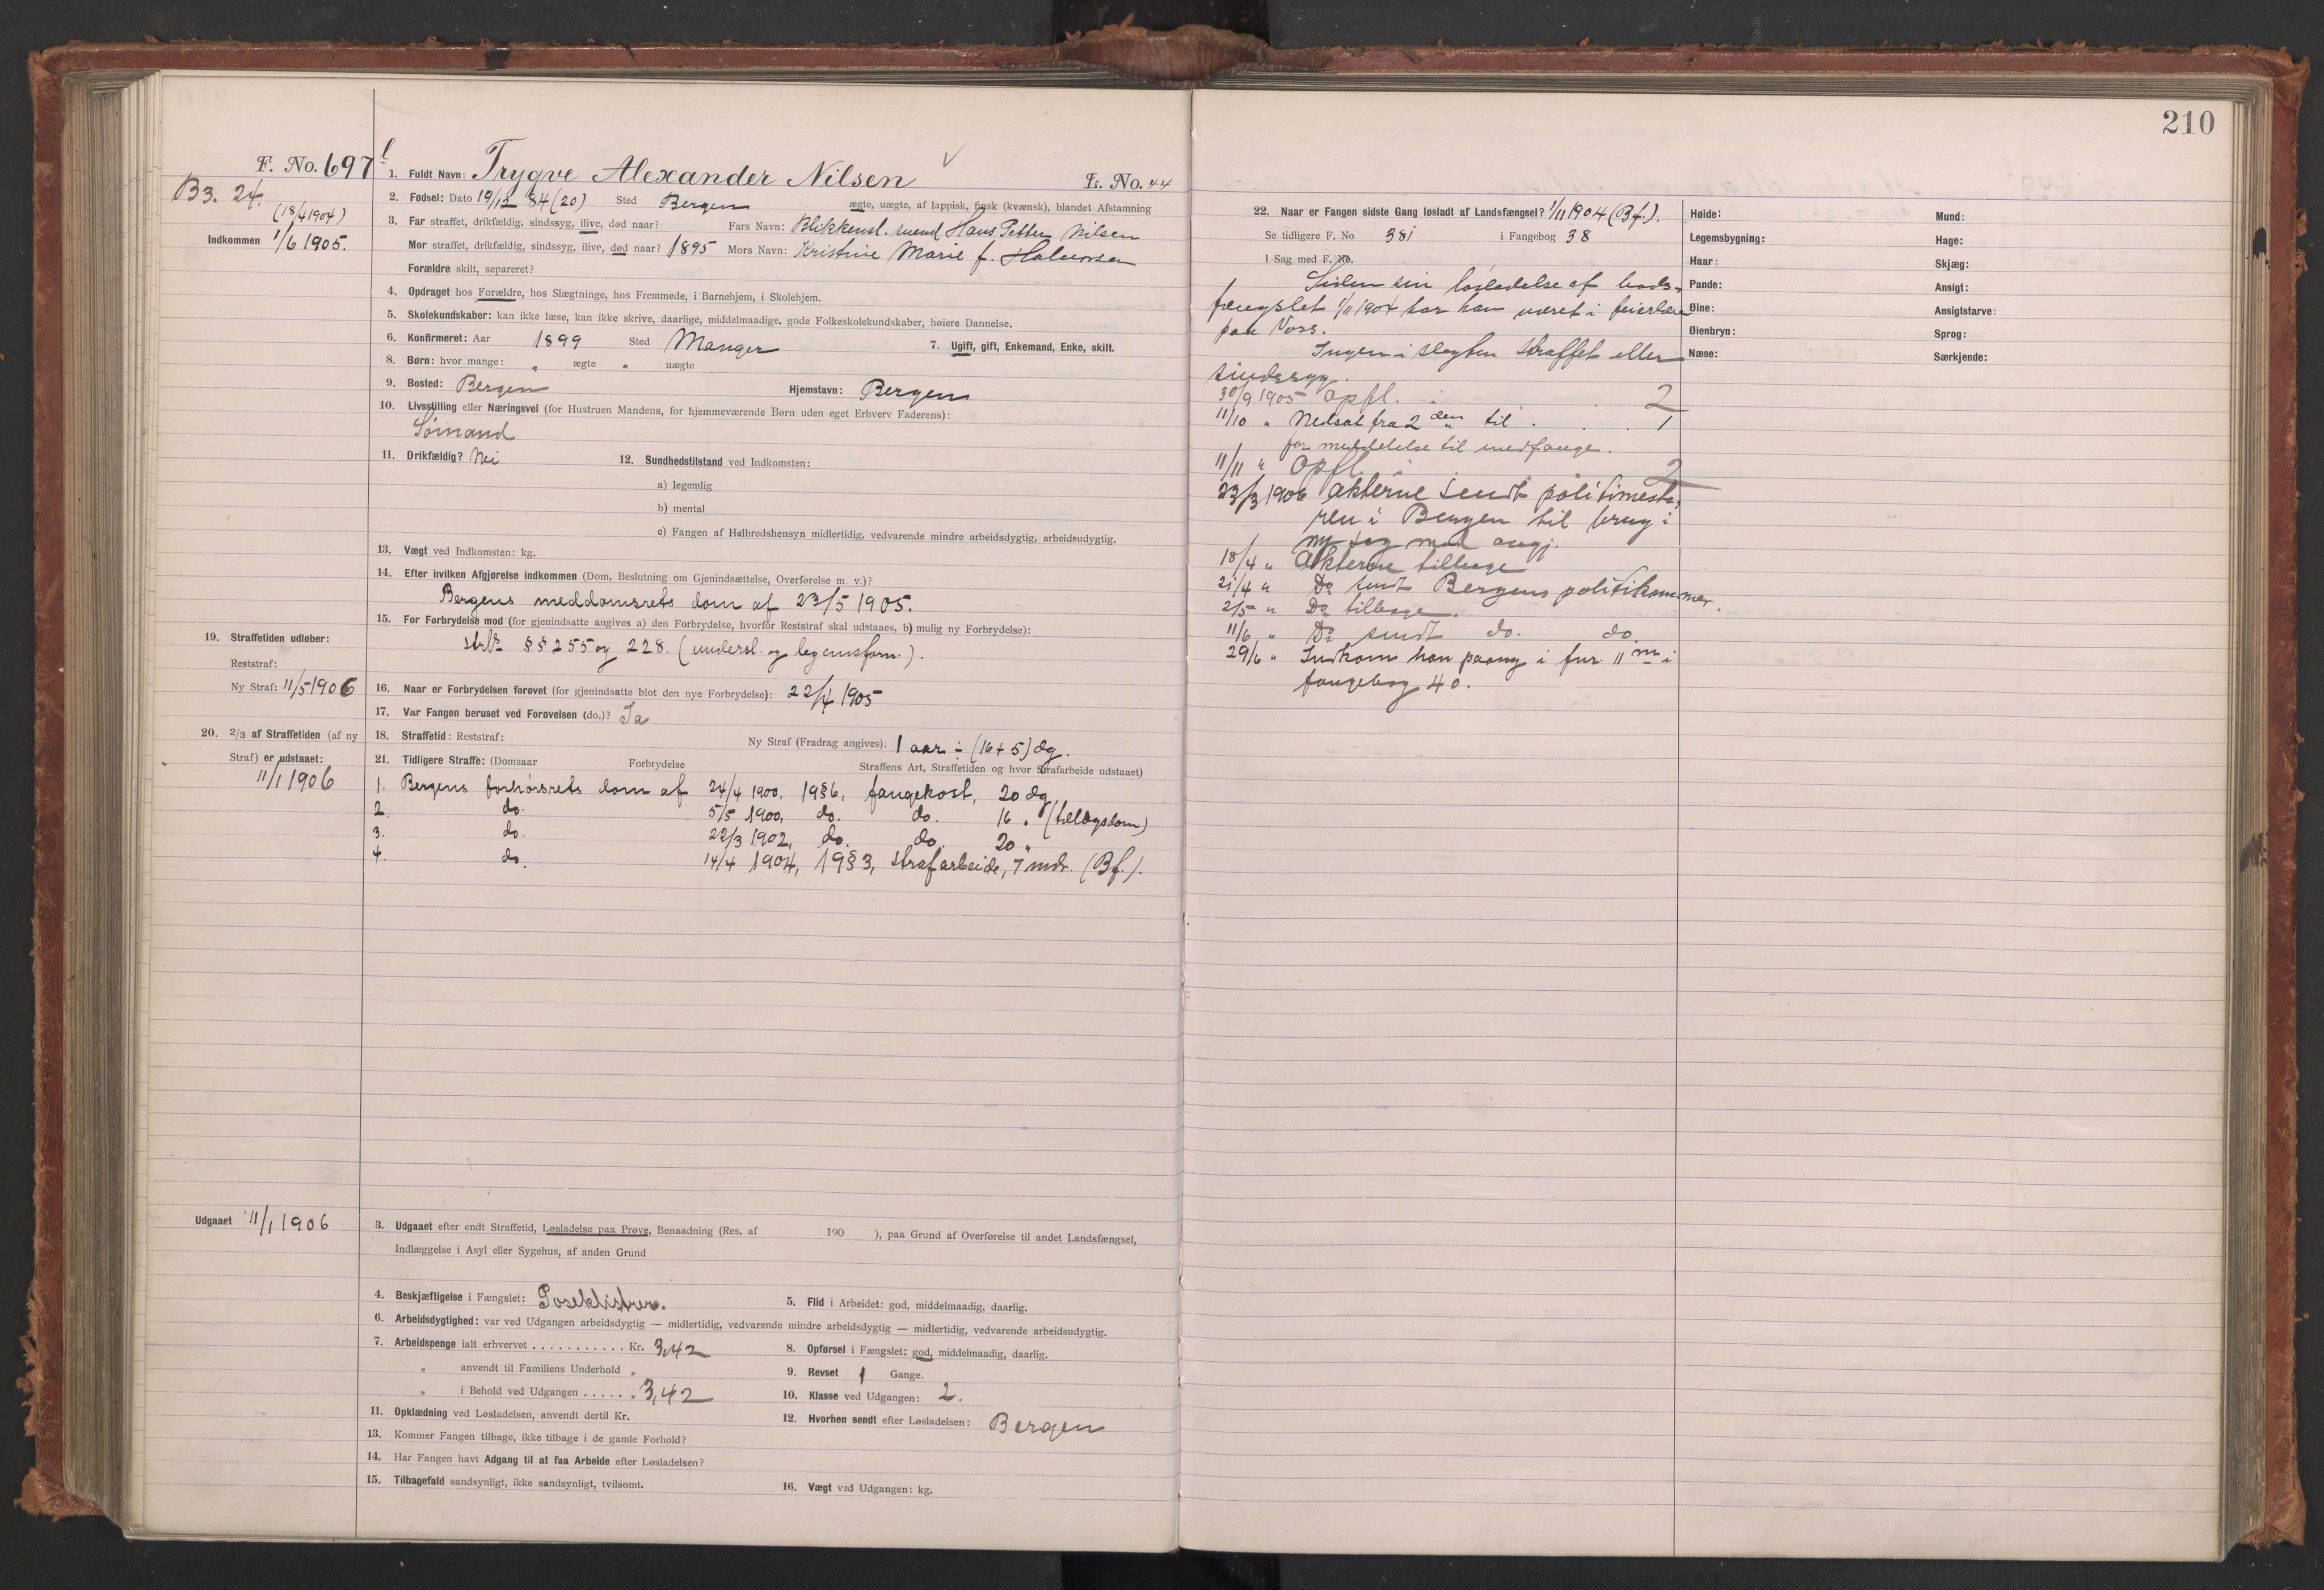 210
F. No. 697
B3. 24.
(18/4 1904)
Indkommen 1/6 1905.
1. Fuldt Navn: Trygve Alexander Nilsen
L. No. 44
2. Fødsel: Dato 19/12 84 (20) Sted Bergen ægte, uægte, af lappisk, finsk (kvænsk), blandet Afstamning
3. Far straffet, drikfældig, sindssyg, ilive, død naar? Fars Navn: Blikkensl. svend Hans Petter Nilsen
Mor straffet, drikfældig, sindssyg, ilive, død naar? 1895 Mors Navn: Kristine Marie f. Halvorsen
Forældre skilt, separeret?
4. Opdraget hos Forældre, hos Slægtninge, hos Fremmede, i Barnehjem, i Skolehjem.
5. Skolekundskaber: kan ikke læse, kan ikke skrive, daarlige, middelmaadige, gode Folkeskolekundskaber, høiere Dannelse.
6. Konfirmeret: Aar 1899 Sted Manger 7. Ugift, gift, Enkemand, Enke, skilt.
8. Børn: hvor mange: " ægte " uægte
9. Bosted: Bergen Hjemstavn: Bergen
10. Livsstilling eller Næringsvei (for Hustruen Mandens, for hjemmeværende Børn uden eget Erhverv Faderens):
Sømand
11. Drikfældig? Nei 12. Sundhedstilstand ved Indkomsten:
a) legemlig
b) mental
c) Fangen af Helbredshensyn midlertidig, vedvarende mindre arbeidsdygtig, arbeidsudygtig.
13. Vægt ved Indkomsten: kg.
14. Efter hvilken Afgjørelse indkommen (Dom, Beslutning om Gjenindsættelse, Overførelse m. v.)?
Bergens meddomsrets dom af 23/5 1905.
15. For Forbrydelse mod (for gjenindsatte angives a) den Forbrydelse, hvorfor Reststraf skal udstaaes, b) mulig ny Forbrydelse):
strl. §§ 255 og 228. (undersl. og legemsforn.).
19. Straffetiden udløber:
Reststraf:
Ny Straf: 11/5 1906
16. Naar er Forbrydelsen forøvet (for gjenindsatte blot den nye Forbrydelse): 22/4 1905
17. Var Fangen beruset ved Forøvelsen (do.)? Ja
20. 2/3 af Straffetiden (af ny Straf) er udstaaet:
11/1 1906
18. Straffetid: Reststraf: Ny Straf (Fradrag angives): 1 aar ÷ (16 + 5) dg.
21. Tidligere Straffe: (Domsaar Forbrydelse Straffens Art, Straffetiden og hvor Strafarbeide udstaaet)
1. Bergens forhørsrets dom af 24/4 1900, 19§6, fangekost, 20 dg
2. do. 5/5 1900, do. do. 16 " (tillægsdom)
3. do. 22/3 1902, do. do. 20 "
4. do. 14/4 1904, 19§3, strafarbeide, 7 mdr. (Bf.).
Udgaaet 11/1 1906
3. Udgaaet efter endt Straffetid, Løsladelse paa Prøve, Benaadning (Res. af 190 ), paa Grund af Overførelse til andet Landsfængsel,
Indlæggelse i Asyl eller Sygehus, af anden Grund
4. Beskjæftigelse i Fængslet: Poseklistrer. 5. Flid i Arbeidet: god, middelmaadig, daarlig.
6. Arbeidsdygtighed: var ved Udgangen arbeidsdygtig — midlertidig, vedvarende mindre arbeidsdygtig — midlertidig, vedvarende arbeidsudygtig.
7. Arbeidspenge ialt erhvervet . . . . . . . . . . . Kr. 3,42 8. Opførsel i Fængslet: god, middelmaadig, daarlig.
" anvendt til Familiens Underhold " 9. Revset 1 Gange.
" i Behold ved Udgangen . . . . . . " 3,42 10. Klasse ved Udgangen: 2.
11. Opklædning ved Løsladelsen, anvendt dertil Kr. 12. Hvorhen sendt efter Løsladelsen: Bergen
13. Kommer Fangen tilbage, ikke tilbage i de gamle Forhold?
14. Har Fangen havt Adgang til at faa Arbeide efter Løsladelsen?
15. Tilbagefald sandsynligt, ikke sandsynligt, tvilsomt. 16. Vægt ved Udgangen: kg.
22. Naar er Fangen sidste Gang løsladt af Landsfængsel? 1/11 1904 (Bf.).
Se tidligere F. No 381 i Fangebog 38
I Sag med F. No.
Siden sin løsladelse af bods-
fængslet 1/11 1904 har han været i feierlære
paa Voss.
Ingen i slegten straffet eller
sindssyg.
30/9 1905 Opfl. . . . 2
11/10 " Nedsat fra 2den til . . . 1
for meddelelse til medfange.
11/11 " Opfl. 2
23/3 1906 Akterne sendt politimeste-
ren i Bergen til brug i
ny sag mod angj.
18/4 " Akterne tilbage
21/4 " Do sendt Bergens politikammer.
2/5 " Do tilbage.
11/6 " Do sendt do. do.
29/6 " Indkom han paany i fnr. 11 i
fangebog 40.
Høide: Mund:
Legemsbygning: Hage:
Haar: Skjæg:
Pande: Ansigt:
Øine: Ansigtsfarve:
Øienbryn: Sprog:
Næse: Særkjende: